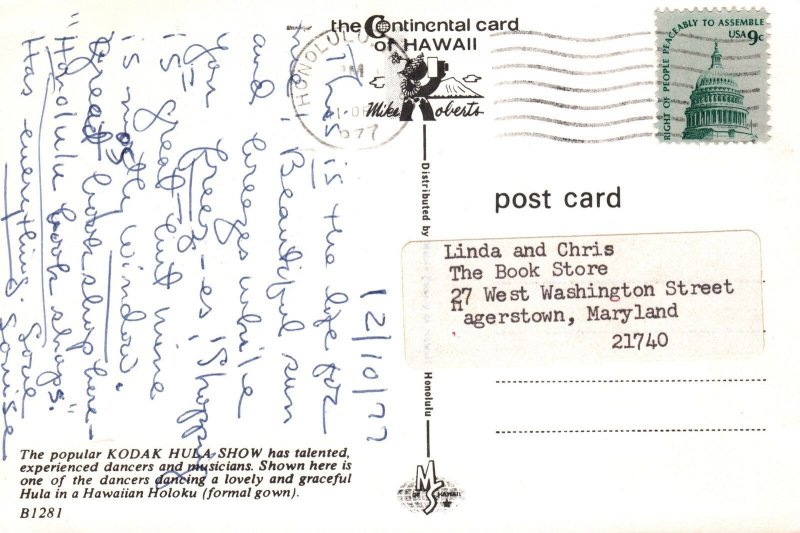 the Continental card
of HAWAII
Mike Roberts
HONOLULU
1977
RIGHT OF PEOPLE PEACEABLY TO ASSEMBLE
USA 9c
post card
Linda and Chris
The Book Store
27 West Washington Street
Hagerstown, Maryland
21740
Distributed by
Honolulu
MS
OF HAWAII
12/10/77
This is the life for
me! Beautiful sun
and breezes while
you freeze-es! Shopping
is great but mine
is mostly window.
Great bookshop here -
"Honolulu book shops."
Has everything. Love
Louise
The popular KODAK HULA SHOW has talented,
experienced dancers and musicians. Shown here is
one of the dancers dancing a lovely and graceful
Hula in a Hawaiian Holoku (formal gown).
B1281